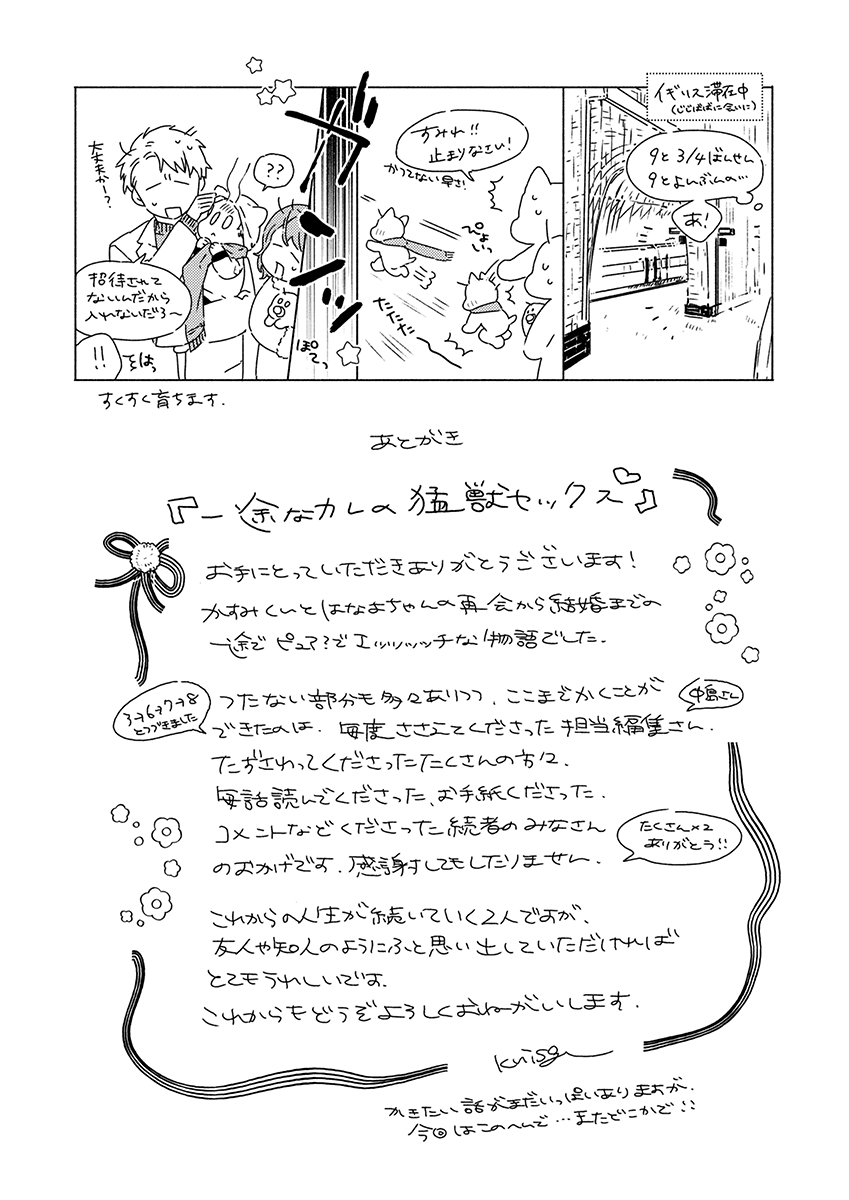 イギリス滞在中
(じじばばに会いに)
9と3/4ばんせん
9とよんぶんの…
あ!
すみれ!!
止まりなさい!
かつてない早さ!
ぴょいっ
たたたっ
ガンッ
ぽてっ
??
大丈夫かー?
招待されて
ないんだから
入れないだろ〜
!!
そはっ
すくすく育ちます.
あとがき
『一途なカレの猛獣セックス♡』
お手にとっていただきありがとうございます!
かすみくんとはなよちゃんの再会から結婚までの
一途で ピュア?でエッッッッチな物語でした.
つたない部分も多々ありつつ、ここまでかくことが
できたのは、毎度ささえてくださった担当編集さん.
中島さん
3→6→7→8
とつづきました
たずさわってくださったたくさんの方々.
毎話読んでくださった、お手紙くださった.
コメントなどくださった続者のみなさん
のおかげです. 感謝してもしたりません.
たくさん×2
ありがとう!!
これからの人生が続いていく2人ですが、
友人や知人のようにふと思い出していただければ
とてもうれしいです.
これからもどうぞよろしくおねがいします.
kuisg
かきたい話がまだいっぱいありますが.
今回はこのへんで…またどこかで!!